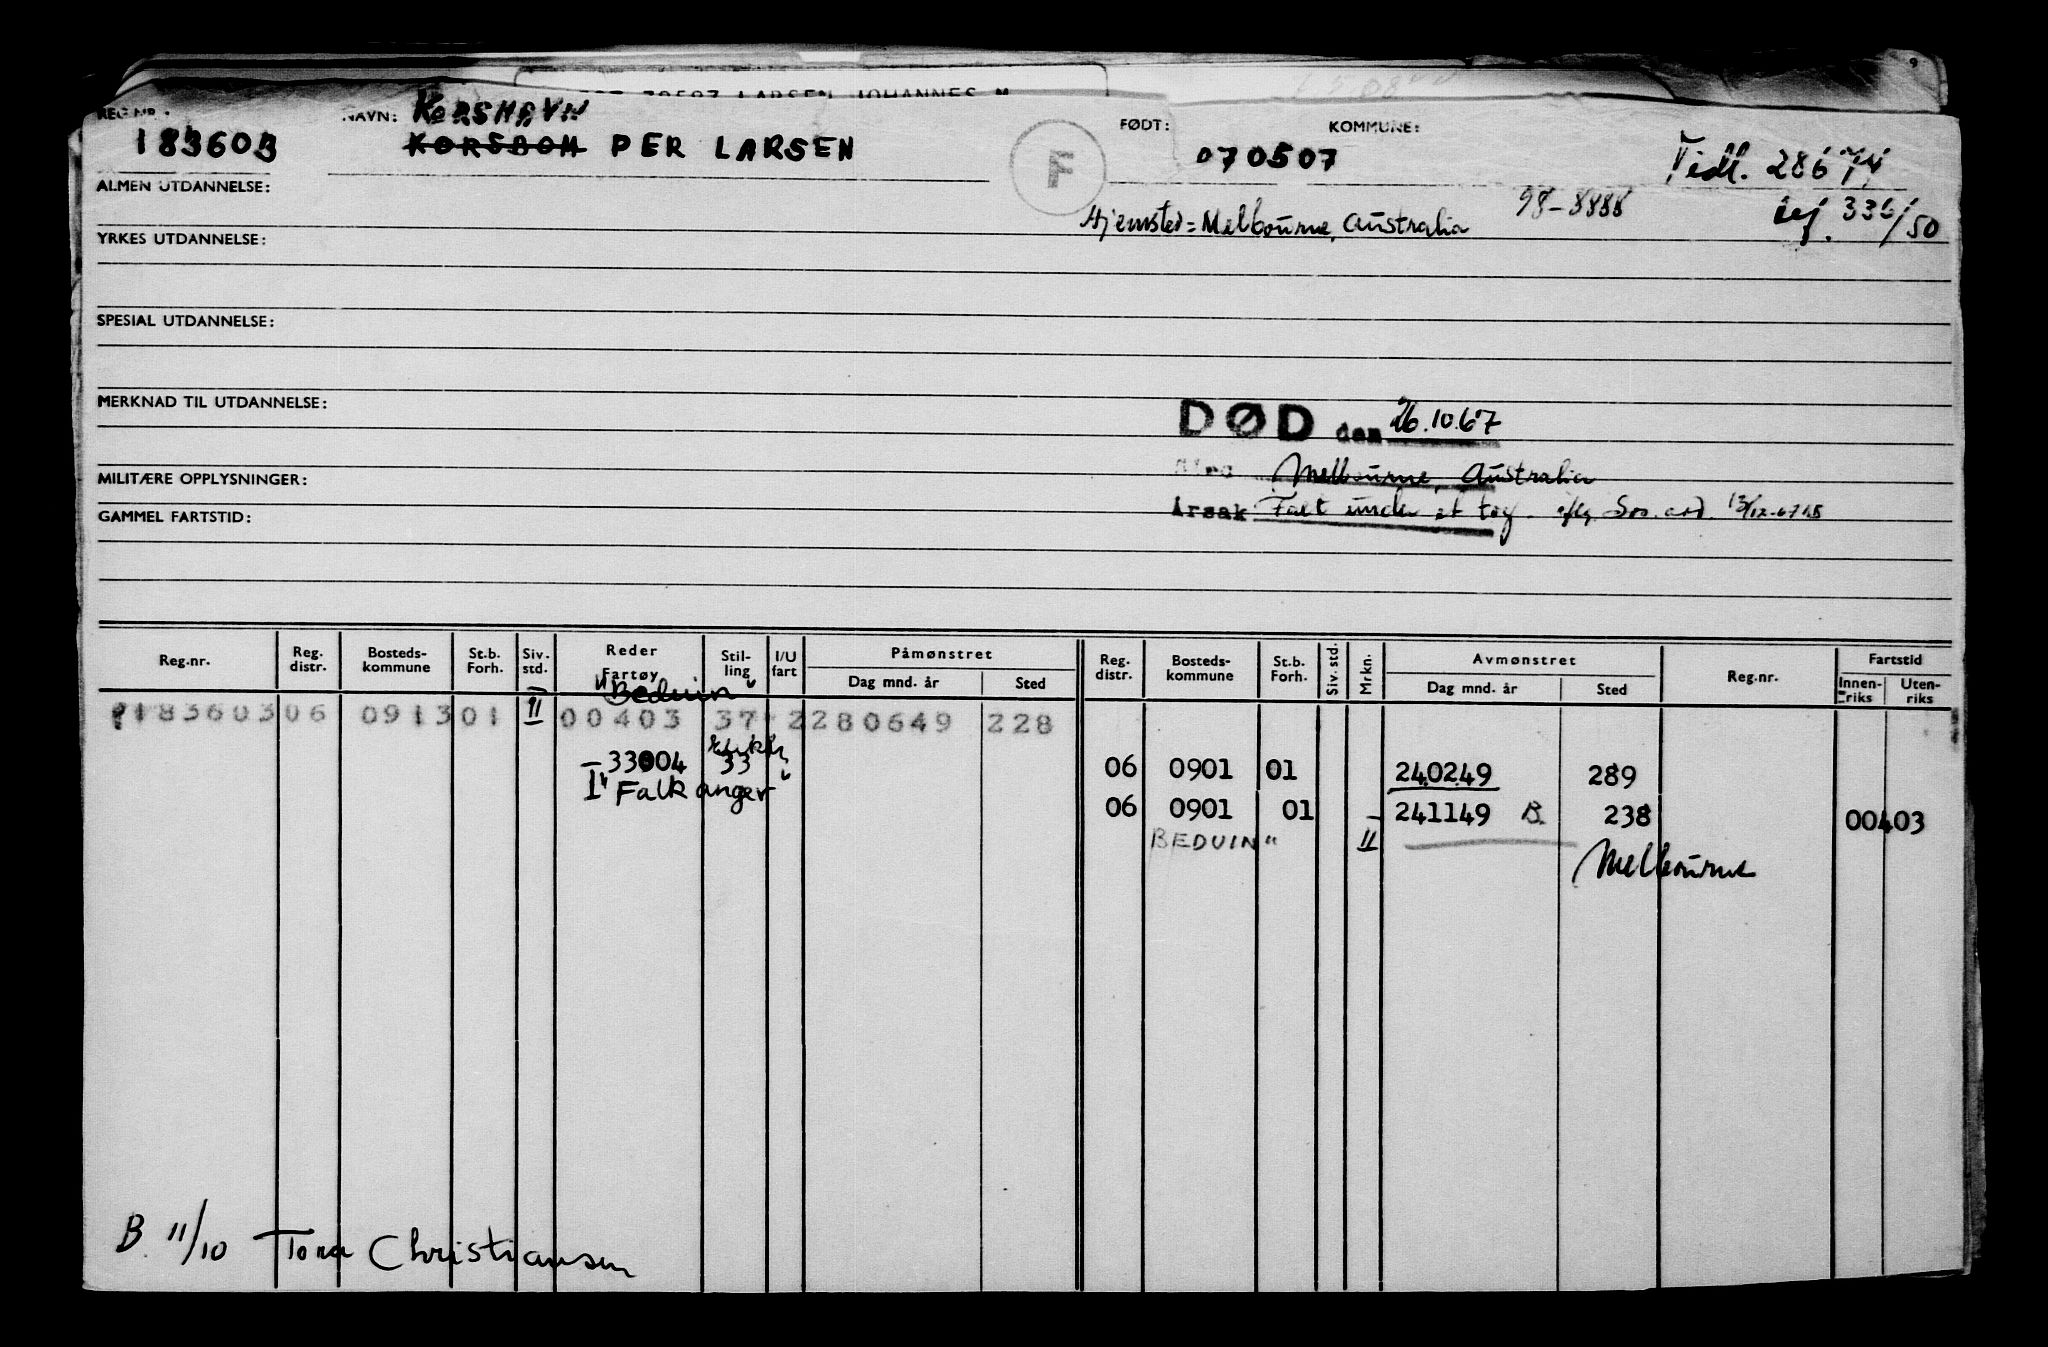 LARSEN JOHANNES M
REG.NR.: NAVN: KORSHAVN FØDT: KOMMUNE:
183603 KORSBOM PER LARSEN F 070507 Tidl. 28674
ALMEN UTDANNELSE:
Hjemsted = Melbourne, Australia 98-8888 iej. 336/50
YRKES UTDANNELSE:
SPESIAL UTDANNELSE:
MERKNAD TIL UTDANNELSE:
DØD den 26.10.67
MILITÆRE OPPLYSNINGER: Melbourne, Australia
GAMMEL FARTSTID: Årsak Falt under et tog.
Reg.nr. Reg. distr. Bosteds-kommune St.b. Forh. Siv. std. Reder Fartøy Stil-ling I/U fart Påmønstret Dag mnd. år Sted Reg. distr. Bosteds-kommune St.b. Forh. Siv. std. Mrkn. Avmønstret Dag mnd. år Sted Reg.nr. Fartstid Innen-riks Uten-riks
"Beduin"
183603 06 0913 01 II 00403 37 2 280649 228
33004 33 06 0901 01 240249 289
I "Falkanger"
06 0901 01 241149 B. 238 00403
BEDUIN" II
Melbourne
B. 11/10 Tora Christiansen